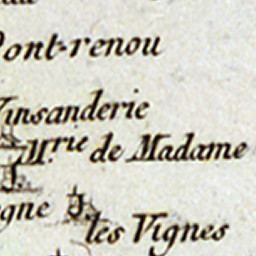 Pont-renou
Vinsanderie
M.rie de Madame
ogne
les Vignes